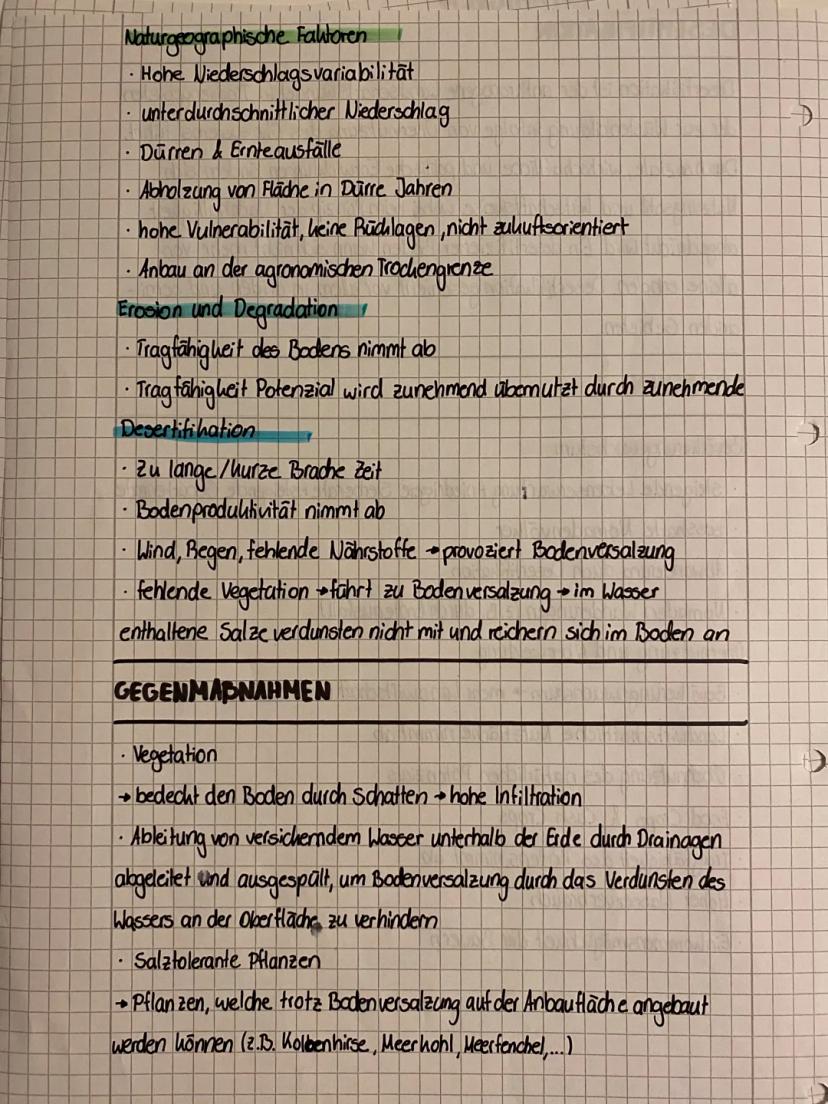 Naturgeographische Faktoren
· Hohe Niederschlagsvariabilität
· unterdurchschnittlicher Niederschlag
· Dürren & Ernteausfälle
· Abholzung von Fläche in Dürre Jahren
· hohe Vulnerabilität, keine Rücklagen, nicht zukuftsorientiert
· Anbau an der agronomischen Trockengrenze
Erosion und Degradation
· Tragfähigkeit des Bodens nimmt ab
· Tragfähigkeit Potenzial wird zunehmend übernutzt durch zunehmende
Desertifikation
· Zu lange/kurze Brache Zeit
· Bodenproduktivität nimmt ab
· Wind, Regen, fehlende Nährstoffe → provoziert Bodenversalzung
· fehlende Vegetation → führt zu Bodenversalzung → im Wasser
enthaltene Salze verdunsten nicht mit und reichern sich im Boden an
GEGENMAßNAHMEN
· Vegetation
→ bedeckt den Boden durch Schatten → hohe Infiltration
· Ableitung von versicherndem Wasser unterhalb der Erde durch Drainagen
abgeleitet und ausgespült, um Bodenversalzung durch das Verdunsten des
Wassers an der Oberfläche zu verhindern
· Salztolerante Pflanzen
→ Pflanzen, welche trotz Bodenversalzung auf der Anbaufläche angebaut
werden können (z.B. Kolbenhirse, Meerkohl, Meerfenchel,...)